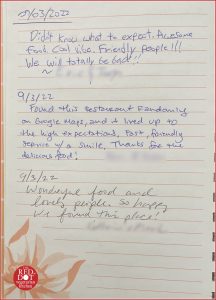 9/03/2022
Didn't know what to expect. Awesome
Food. Cool vibe. Friendly people!!!
We will totally be back!!
9/3/22
Found this Restaurant Randomly
on Google Maps, and it lived up to
the high expectations. Fast, friendly
service w/ a smile. Thanks for the
delicious food!
9/3/22
Wonderful food and
lovely people. So happy
we found this place!
RED DOT
Vegetarian
Kitchen